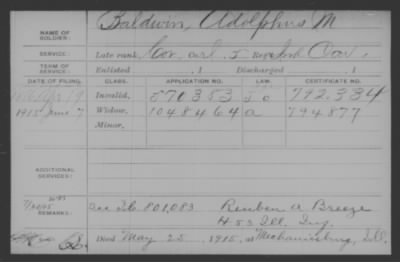 NAME OF SOLDIER: Baldwin, Adolphus M
SERVICE: Late rank, Co. I Reg't Ind Cav.
TERM OF SERVICE: Enlisted , 1 Discharged , 1
DATE OF FILING. CLASS. APPLICATION NO. LAW. CERTIFICATE NO.
Invalid, 570353 792.334
1915 June 7 Widow, 1048464 a 794877
Minor,
ADDITIONAL SERVICES:
REMARKS: 801,083 Reuben A Breeze
Ill. Inf.
Died May 25, 1915, at Mechanicsburg, Ill.